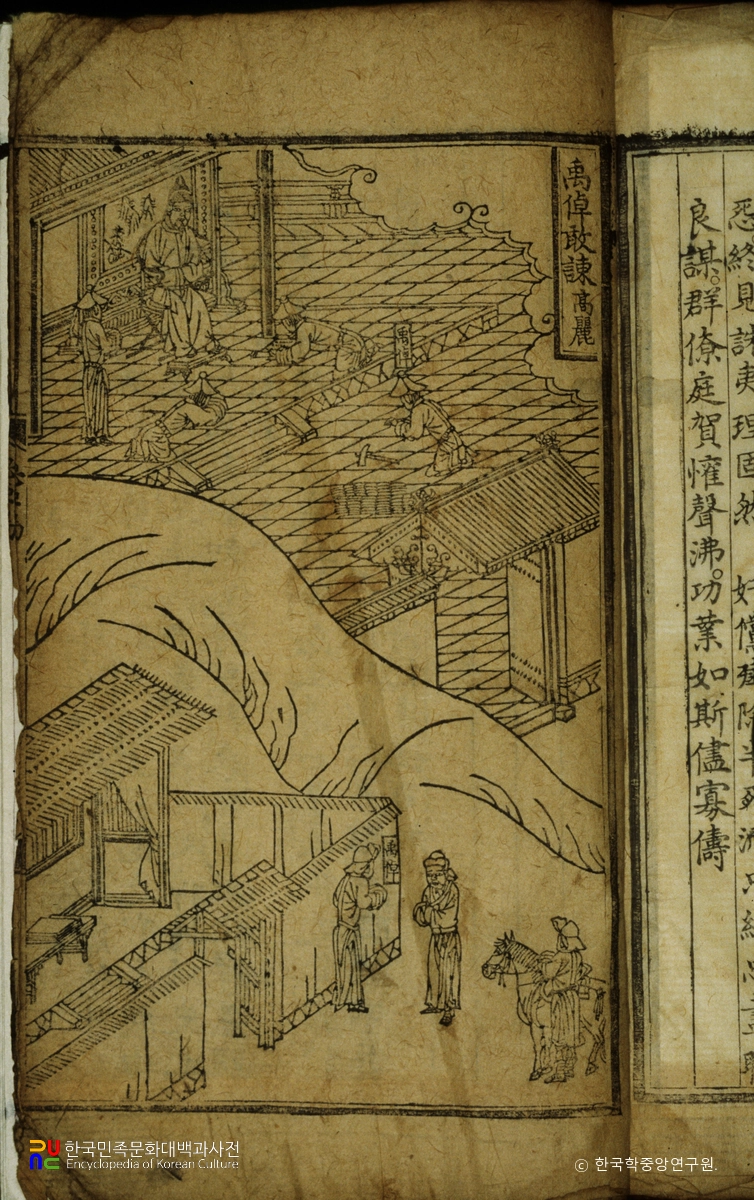 終見誅夷理固然
良謀。群僚庭賀懽聲沸。功業如斯儘寡儔
禹倬敢諫 高麗
禹倬
禹倬
한국민족문화대백과사전
Encyclopedia of Korean Culture
© 한국학중앙연구원.